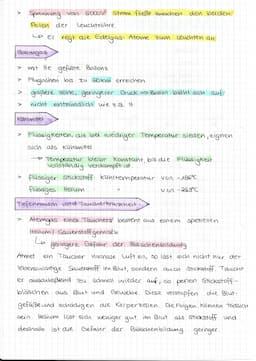 > Spannung von 5000V Strom fließt zwischen den beiden
Polen der Leuchtröhre
↳ Er regt die Edelgas-Atome zum Leuchten an
Ballongas
> mit He gefüllte Ballons
> Flughöhen bis zu erreichen
> größere Höhe, geringerer Druck → Ballon bläht sich auf
> nicht entzündlich wie z.B. H
Kühlmittel
> Flüssigkeiten, die bei niedriger Temperatur sieden, eignen
sich als Kühlmittel
→ Temperatur bleibt konstant, bis die Flüssigkeit
vollständig verdampft ist.
> flüssiger Stickstoff Kühltemperatur von -196°C
flüssiges Helium von -269°C
Tiefenrausch und Taucherkrankheit
> Atemgas eines Tauchers besteht aus einem speziellen
Helium/Sauerstoffgemisch
↳ geringere Gefahr der Bläschenbildung
Atmet ein Taucher normale Luft ein, so löst sich nicht nur der
lebenswichtige Sauerstoff im Blut, sondern auch Stickstoff. Taucht
er anschließend zu schnell wieder auf, so perlen Stickstoff-
bläschen aus Blut und Gewebe. Diese verstopfen die Blut-
gefäße und schädigen die Körperzellen. Die Folgen können tödlich
sein. Helium löst sich weniger gut im Blut als Stickstoff und
deshalb ist die Gefahr der Bläschenbildung geringer.